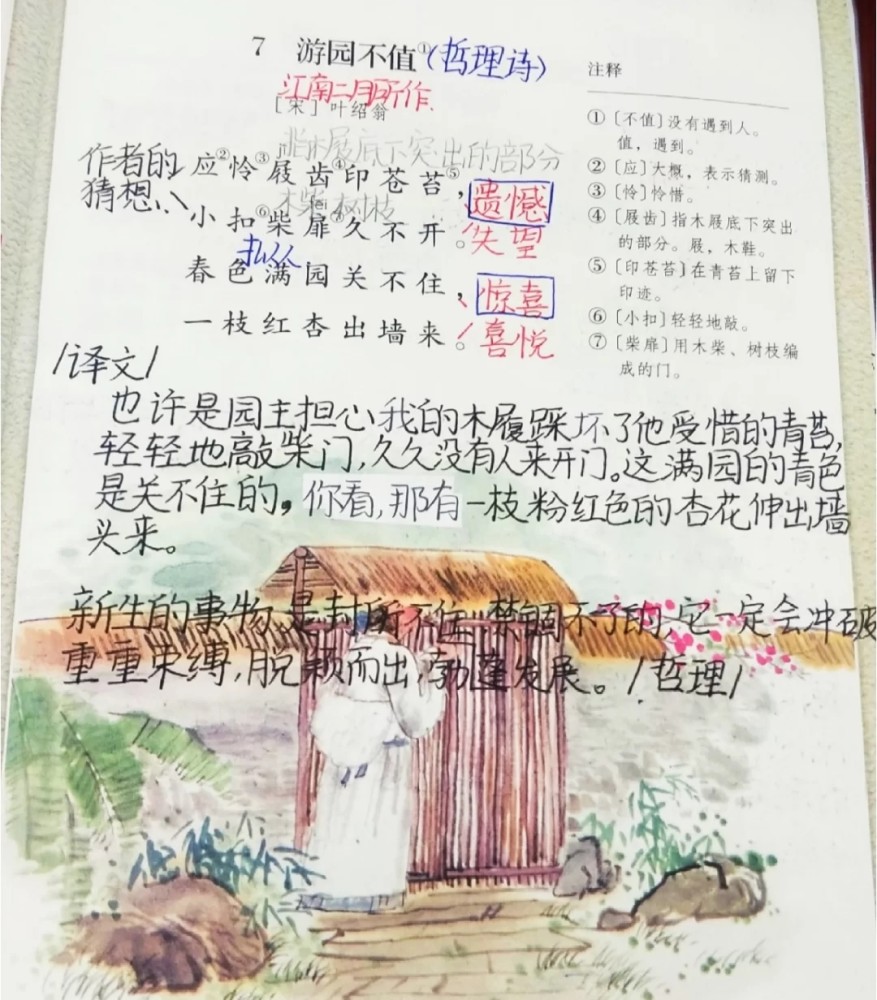 7 游园不值①(哲理诗)
江南二月所作.
[宋] 叶绍翁
指木屐底下突出的部分
作者的猜想
应②怜③屐齿④印苍苔⑤，遗憾
木柴 树枝
小扣⑥柴扉⑦久不开。失望
春色满园关不住，惊喜
一枝红杏出墙来。喜悦
注释
①〔不值〕没有遇到人。
值，遇到。
②〔应〕大概，表示猜测。
③〔怜〕怜惜。
④〔屐齿〕指木屐底下突出
的部分。屐，木鞋。
⑤〔印苍苔〕在青苔上留下
印迹。
⑥〔小扣〕轻轻地敲。
⑦〔柴扉〕用木柴、树枝编
成的门。
/译文/
也许是园主担心我的木屐踩坏了他受惜的青苔,
轻轻地敲柴门,久久没有人来开门。这满园的青色
是关不住的。你看,那有一枝粉红色的杏花伸出墙
头来。
新生的事物是封所不住,禁锢不了的,它一定会冲破
重重束缚,脱颖而出,勃蓬发展。/哲理/